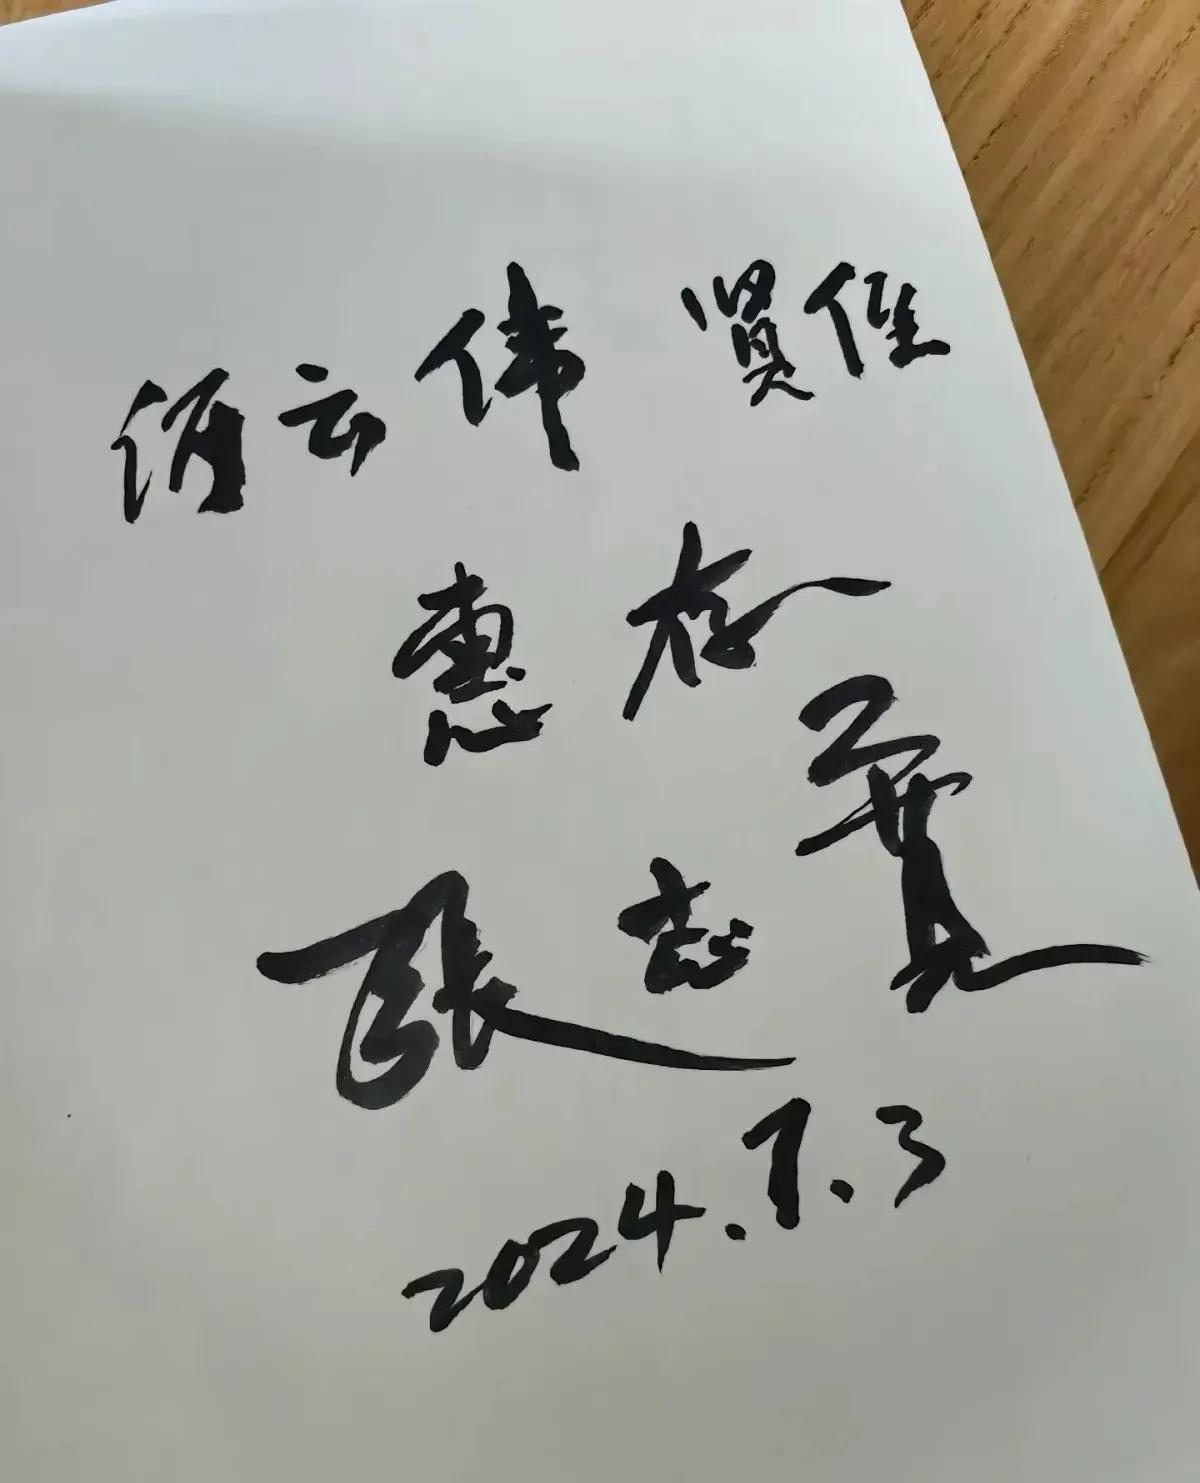 何云伟 贤侄
惠存
张志宽
2024.7.3